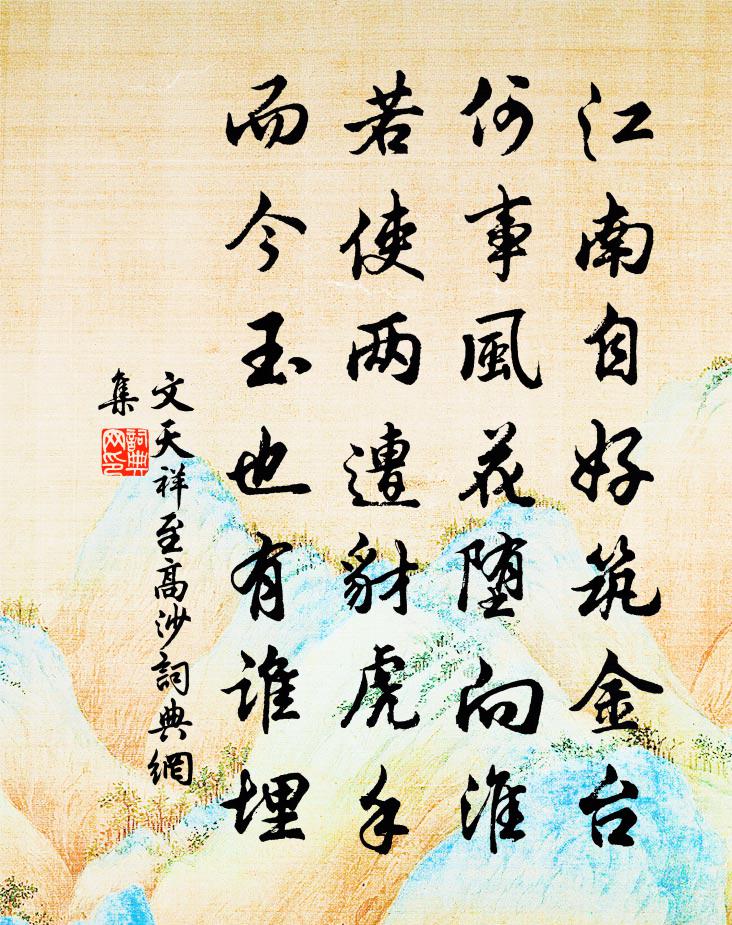 江南自好筑金台
何事風花堕向淮
若使两遭豺虎手
而今玉也有谁埋
文天祥至高沙詞典網
集
詞典
网印